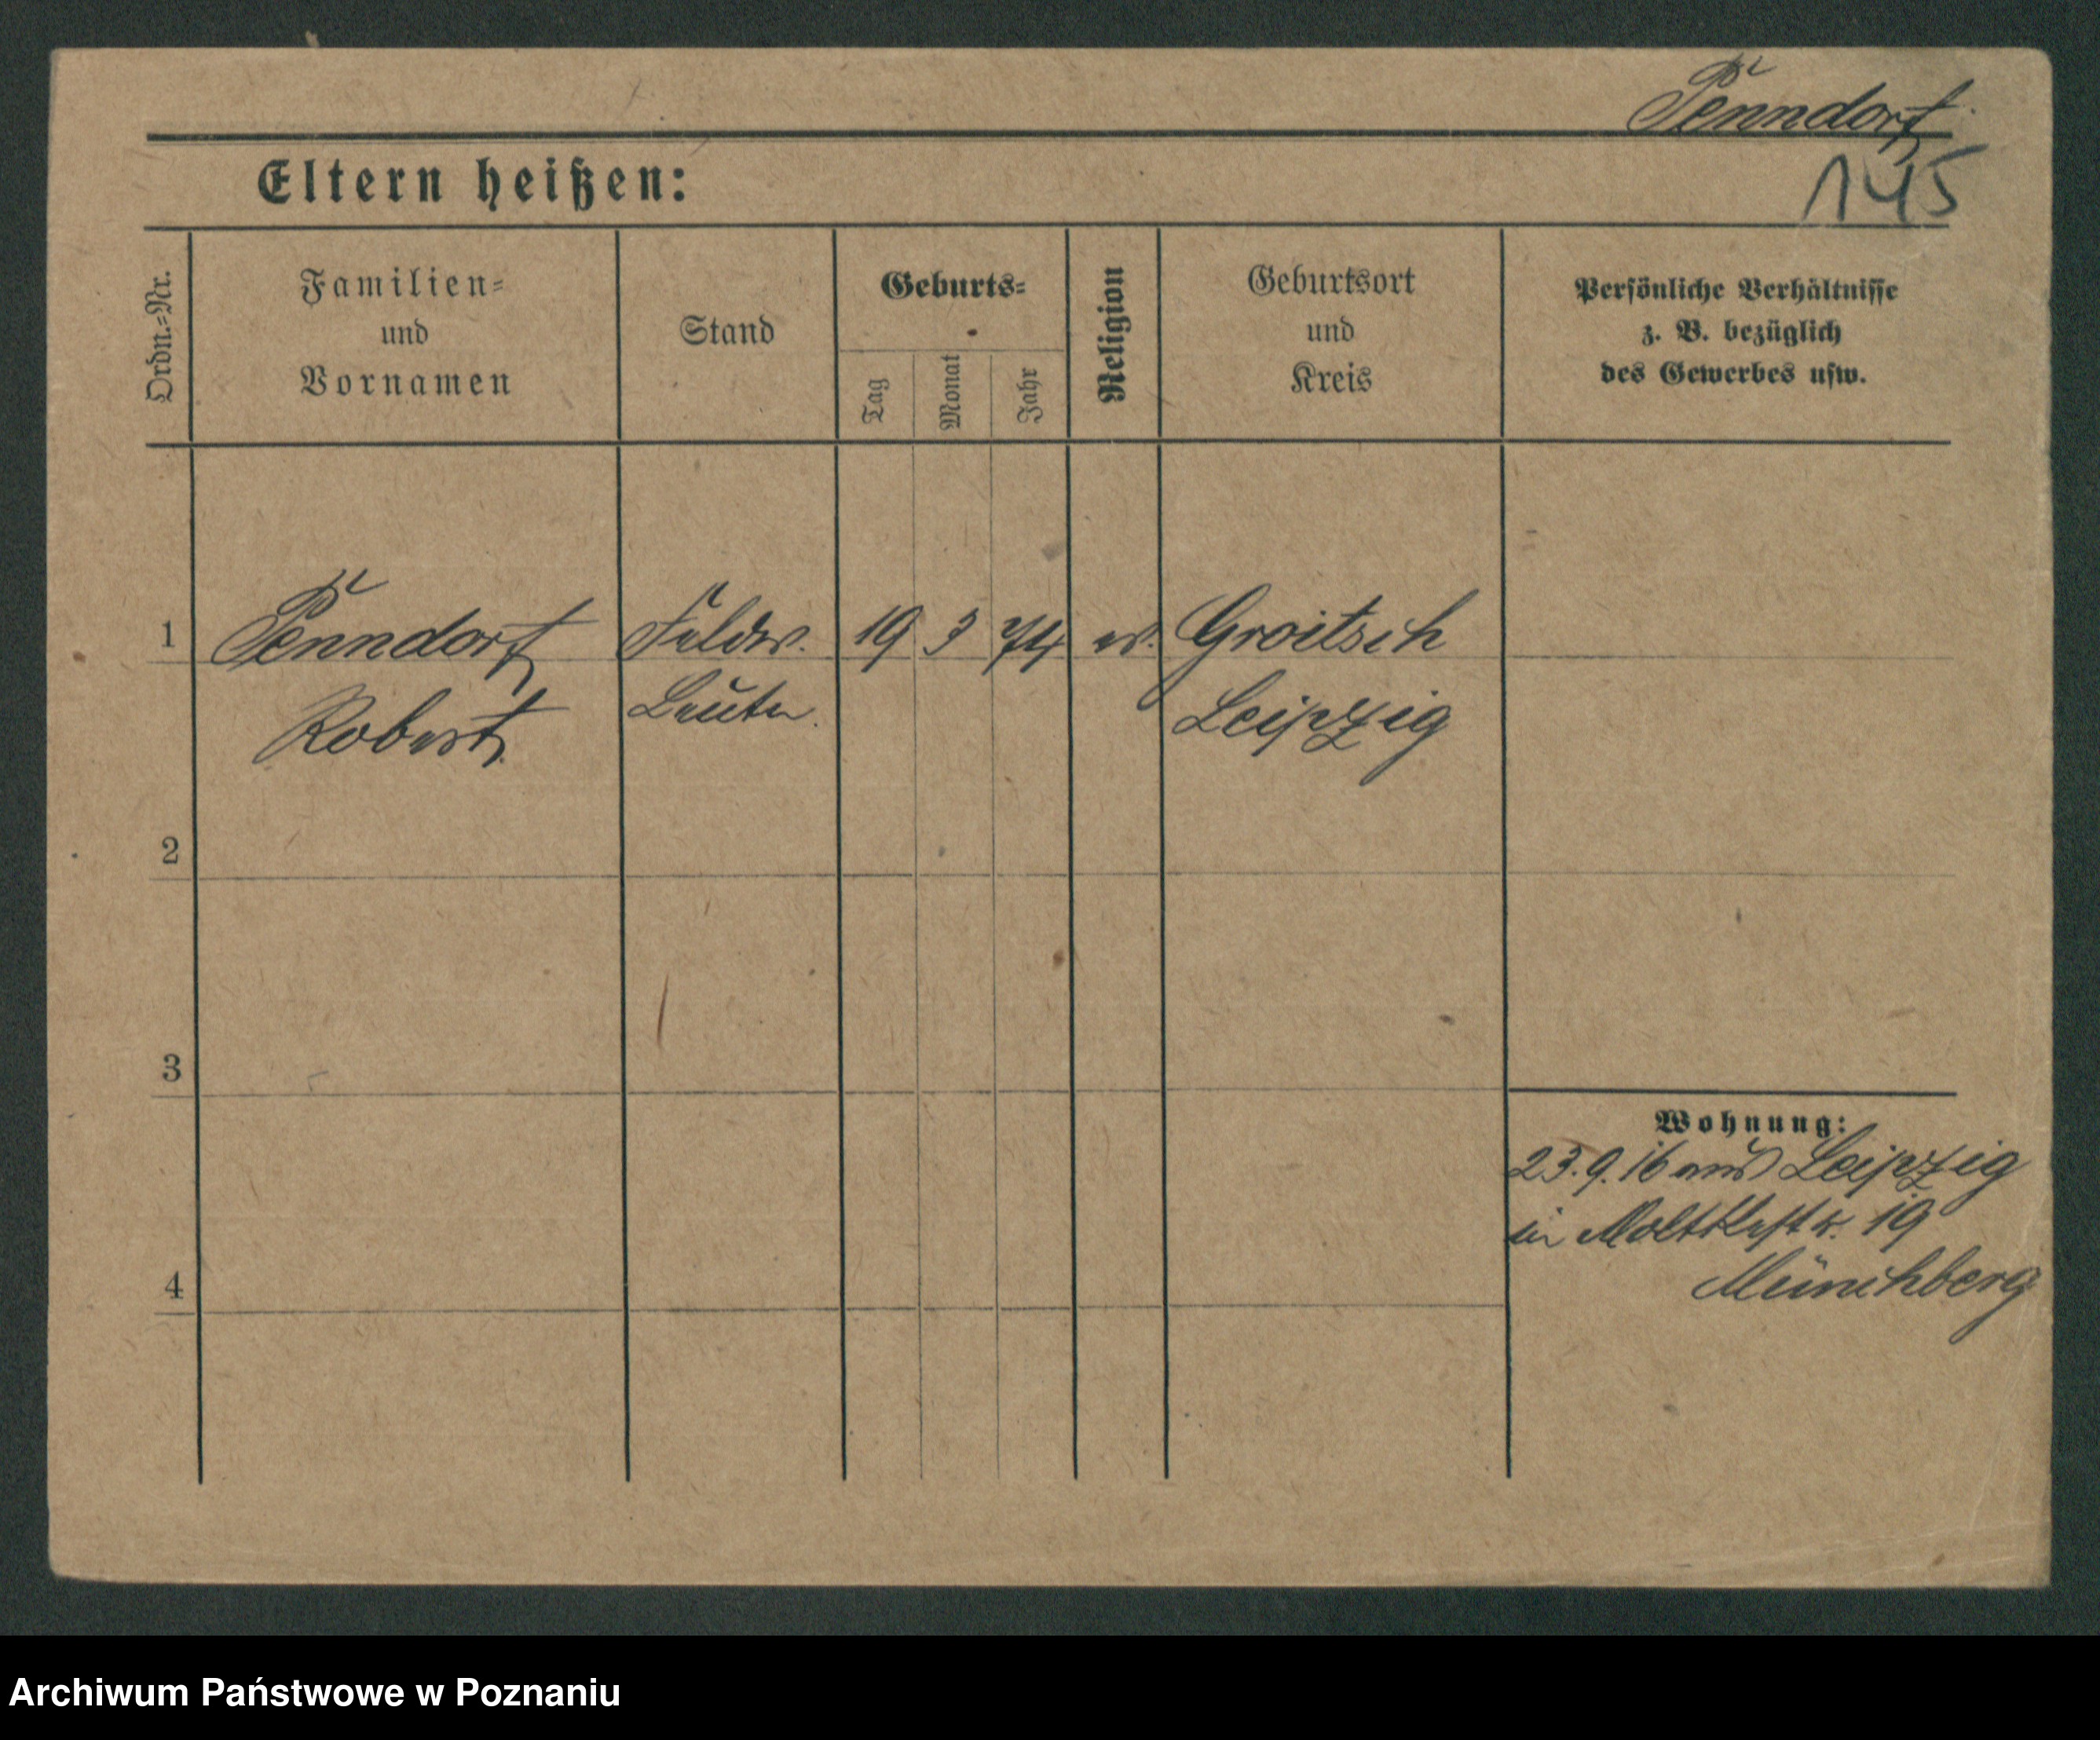 Penndorf
145
Eltern heißen:
Ordn.-Nr.
Familien-
und
Vornamen
Stand
Geburts-
Tag
Monat
Jahr
Religion
Geburtsort
und
Kreis
Persönliche Verhältnisse
z. B. bezüglich
des Gewerbes usw.
1
Penndorf
Robert
Feldw.
Leutn.
19 3 74
ev.
Groitsch
Leipzig
2
3
4
Wohnung:
23.9.16 aus Leipzig
in Moltkestr. 19
Münchberg
Archiwum Państwowe w Poznaniu